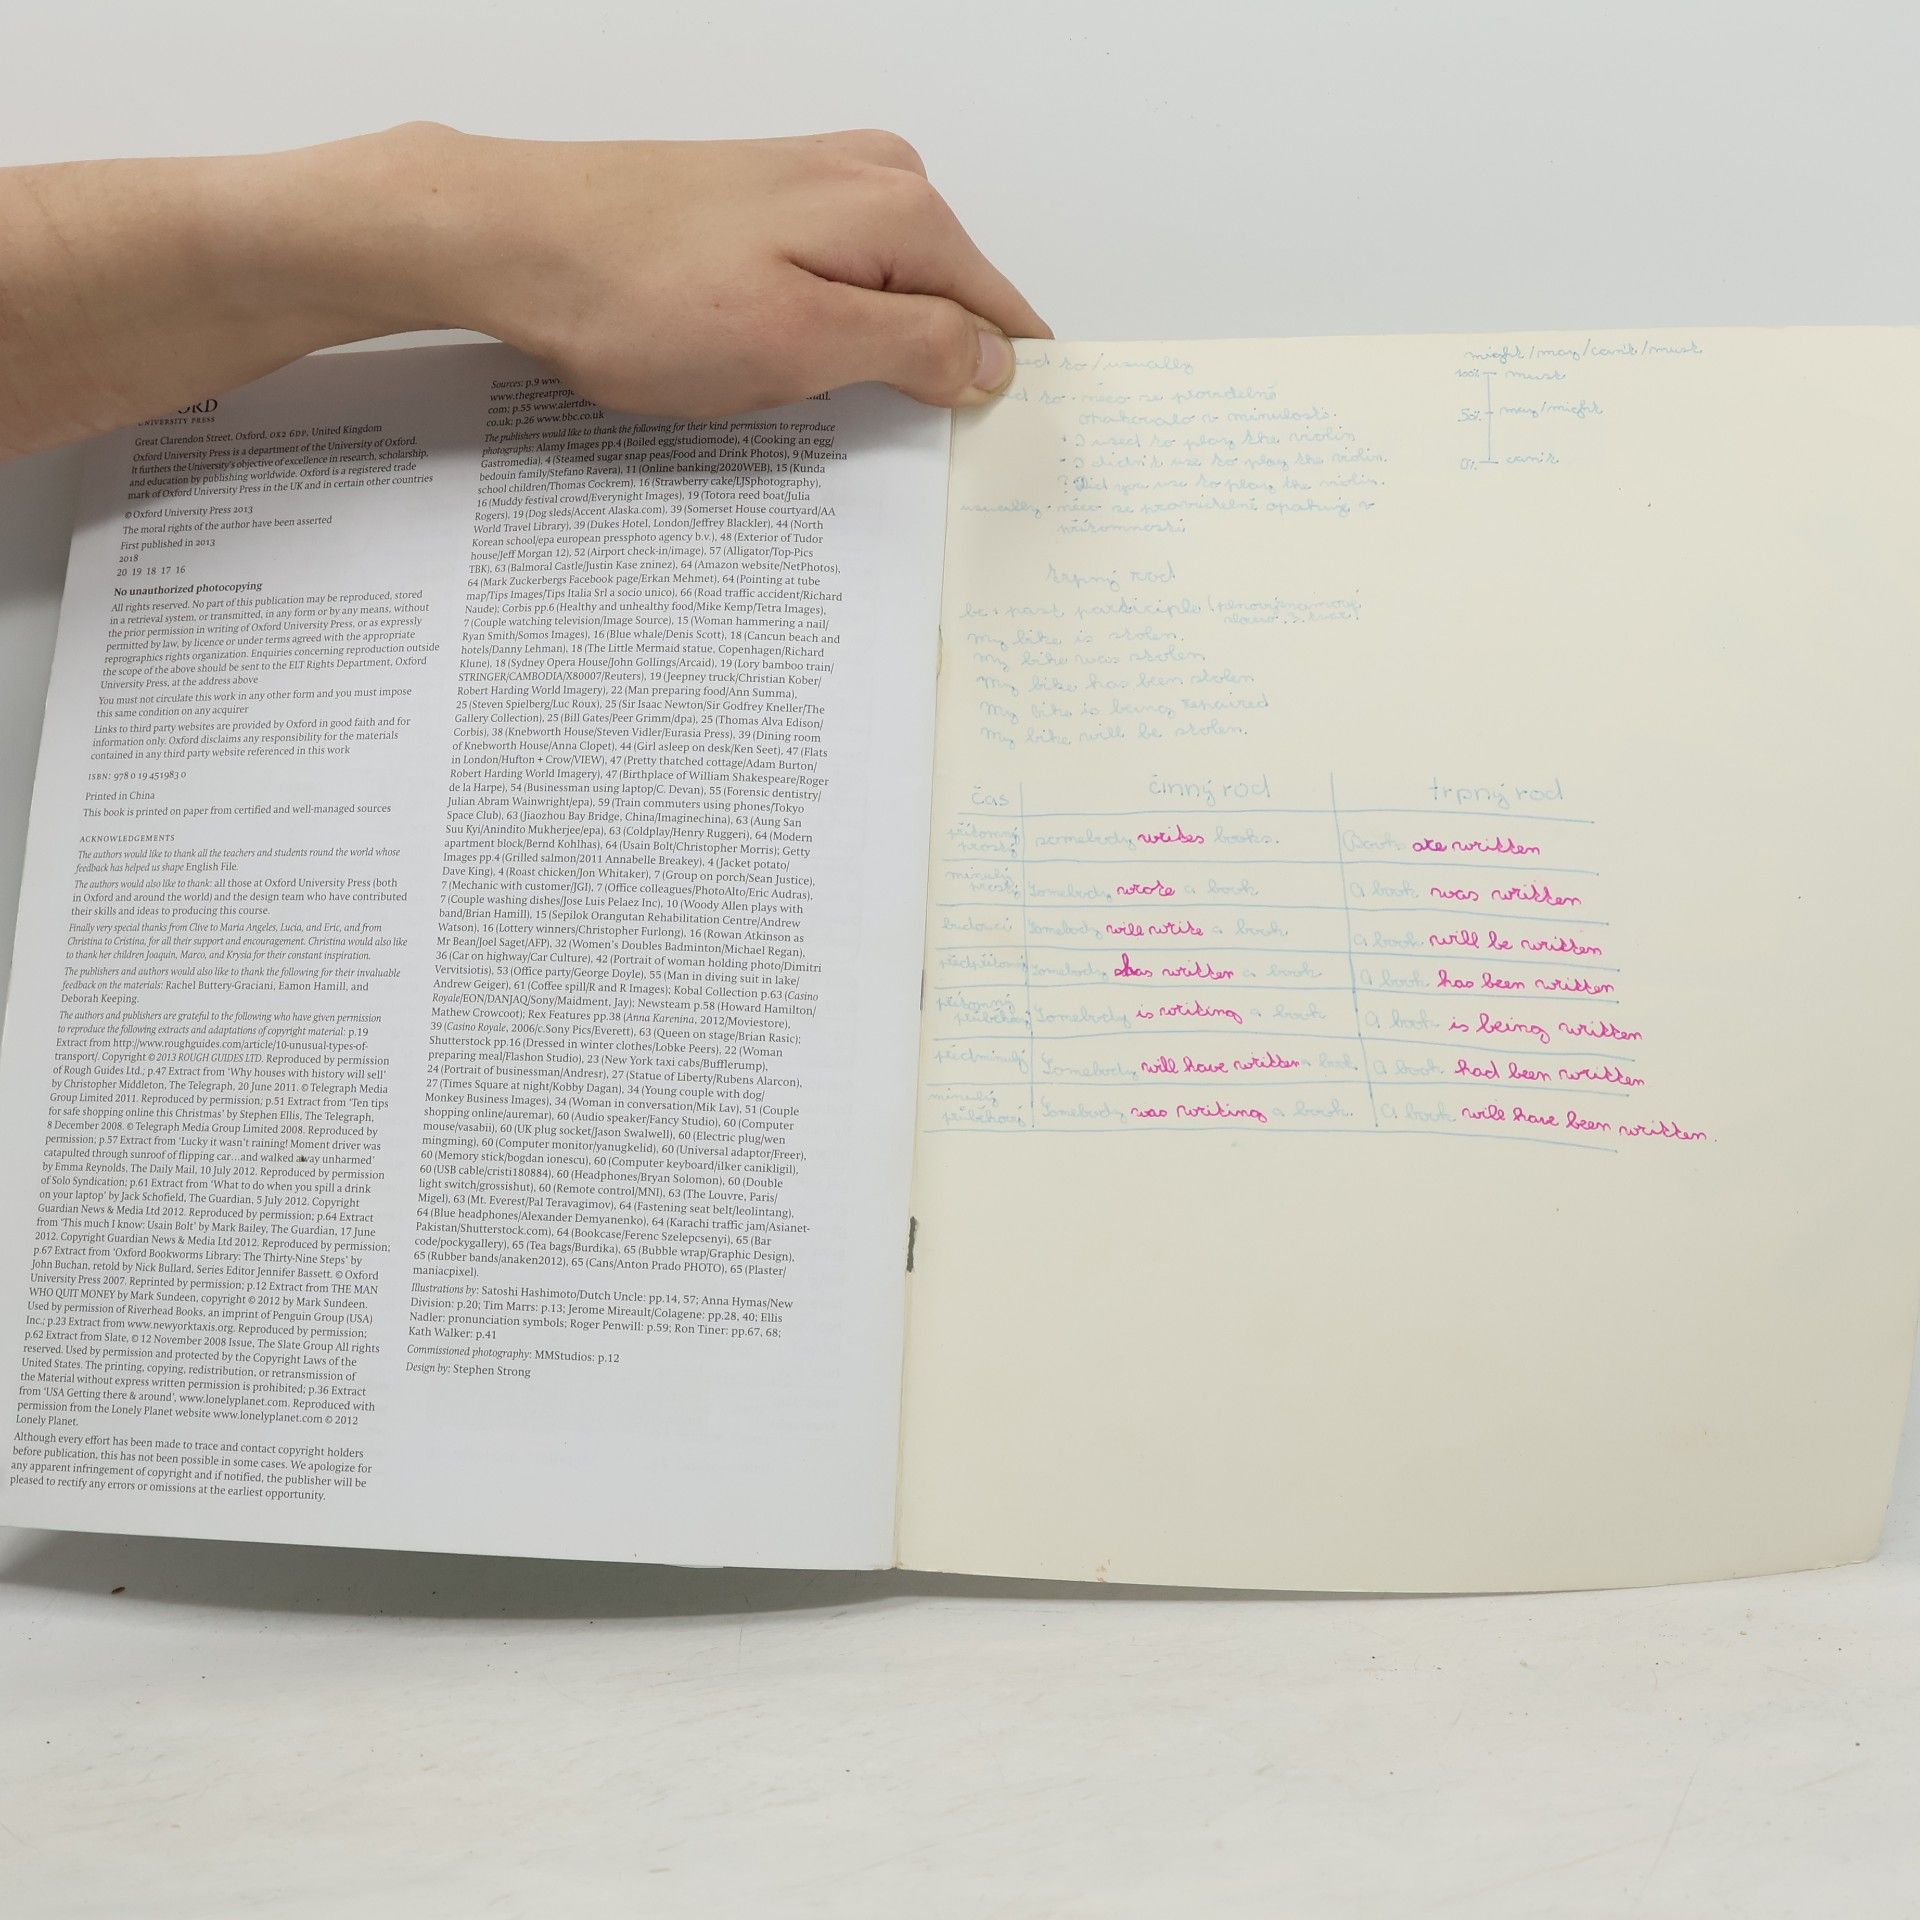 UNIVERSITY PRESS
Great Clarendon Street, Oxford, OX2 6DP, United Kingdom
Oxford University Press is a department of the University of Oxford.
It furthers the University's objective of excellence in research, scholarship,
and education by publishing worldwide. Oxford is a registered trade
mark of Oxford University Press in the UK and in certain other countries
© Oxford University Press 2013
The moral rights of the author have been asserted
First published in 2013
2018
20 19 18 17 16
No unauthorized photocopying
All rights reserved. No part of this publication may be reproduced, stored
in a retrieval system, or transmitted, in any form or by any means, without
the prior permission in writing of Oxford University Press, or as expressly
permitted by law, by licence or under terms agreed with the appropriate
reprographics rights organization. Enquiries concerning reproduction outside
the scope of the above should be sent to the ELT Rights Department, Oxford
University Press, at the address above
You must not circulate this work in any other form and you must impose
this same condition on any acquirer
Links to third party websites are provided by Oxford in good faith and for
information only. Oxford disclaims any responsibility for the materials
contained in any third party website referenced in this work
ISBN: 978 0 19 451983 0
Printed in China
This book is printed on paper from certified and well-managed sources
ACKNOWLEDGEMENTS
The authors would like to thank all the teachers and students round the world whose
feedback has helped us shape English File.
The authors would also like to thank: all those at Oxford University Press (both
in Oxford and around the world) and the design team who have contributed
their skills and ideas to producing this course.
Finally very special thanks from Clive to Maria Angeles, Lucia, and Eric, and from
Christina to Cristina, for all their support and encouragement. Christina would also like
to thank her children Joaquin, Marco, and Krysia for their constant inspiration.
The publishers and authors would also like to thank the following for their invaluable
feedback on the materials: Rachel Buttery-Graciani, Eamon Hamill, and
Deborah Keeping.
The authors and publishers are grateful to the following who have given permission
to reproduce the following extracts and adaptations of copyright material: p.19
Extract from http://www.roughguides.com/article/10-unusual-types-of-
transport/. Copyright © 2013 ROUGH GUIDES LTD. Reproduced by permission
of Rough Guides Ltd.; p.47 Extract from 'Why houses with history will sell'
by Christopher Middleton, The Telegraph, 20 June 2011. © Telegraph Media
Group Limited 2011. Reproduced by permission; p.51 Extract from 'Ten tips
for safe shopping online this Christmas' by Stephen Ellis, The Telegraph,
8 December 2008. © Telegraph Media Group Limited 2008. Reproduced by
permission; p.57 Extract from 'Lucky it wasn't raining! Moment driver was
catapulted through sunroof of flipping car...and walked away unharmed'
by Emma Reynolds, The Daily Mail, 10 July 2012. Reproduced by permission
of Solo Syndication; p.61 Extract from 'What to do when you spill a drink
on your laptop' by Jack Schofield, The Guardian, 5 July 2012. Copyright
Guardian News & Media Ltd 2012. Reproduced by permission; p.64 Extract
from 'This much I know: Usain Bolt' by Mark Bailey, The Guardian, 17 June
2012. Copyright Guardian News & Media Ltd 2012. Reproduced by permission;
p.67 Extract from 'Oxford Bookworms Library: The Thirty-Nine Steps' by
John Buchan, retold by Nick Bullard, Series Editor Jennifer Bassett. © Oxford
University Press 2007. Reprinted by permission; p.12 Extract from THE MAN
WHO QUIT MONEY by Mark Sundeen, copyright © 2012 by Mark Sundeen.
Used by permission of Riverhead Books, an imprint of Penguin Group (USA)
Inc.; p.23 Extract from www.newyorktaxis.org. Reproduced by permission;
p.62 Extract from Slate, © 12 November 2008 Issue, The Slate Group All rights
reserved. Used by permission and protected by the Copyright Laws of the
United States. The printing, copying, redistribution, or retransmission of
the Material without express written permission is prohibited; p.36 Extract
from 'USA Getting there & around', www.lonelyplanet.com. Reproduced with
permission from the Lonely Planet website www.lonelyplanet.com © 2012
Lonely Planet.
Although every effort has been made to trace and contact copyright holders
before publication, this has not been possible in some cases. We apologize for
any apparent infringement of copyright and if notified, the publisher will be
pleased to rectify any errors or omissions at the earliest opportunity.
Sources: p.9
com; p.55
co.uk; p.26 www.bbc.co.uk
The publishers would like to thank the following for their kind permission to reproduce
photographs: Alamy Images pp.4 (Boiled egg/studiomode), 4 (Cooking an egg/
Gastromedia), 4 (Steamed sugar snap peas/Food and Drink Photos), 9 (Muzeina
bedouin family/Stefano Ravera), 11 (Online banking/2020WEB), 15 (Kunda
school children/Thomas Cockrem), 16 (Strawberry cake/LJSphotography),
16 (Muddy festival crowd/Everynight Images), 19 (Totora reed boat/Julia
Rogers), 19 (Dog sleds/Accent Alaska.com), 39 (Somerset House courtyard/AA
World Travel Library), 39 (Dukes Hotel, London/Jeffrey Blackler), 44 (North
Korean school/epa european pressphoto agency b.v.), 48 (Exterior of Tudor
house/Jeff Morgan 12), 52 (Airport check-in/image), 57 (Alligator/Top-Pics
TBK), 63 (Balmoral Castle/Justin Kase zninez), 64 (Amazon website/NetPhotos),
64 (Mark Zuckerbergs Facebook page/Erkan Mehmet), 64 (Pointing at tube
map/Tips Images/Tips Italia Srl a socio unico), 66 (Road traffic accident/Richard
Naude); Corbis pp.6 (Healthy and unhealthy food/Mike Kemp/Tetra Images),
7 (Couple watching television/Image Source), 15 (Woman hammering a nail/
Ryan Smith/Somos Images), 16 (Blue whale/Denis Scott), 18 (Cancun beach and
hotels/Danny Lehman), 18 (The Little Mermaid statue, Copenhagen/Richard
Klune), 18 (Sydney Opera House/John Gollings/Arcaid), 19 (Lory bamboo train/
STRINGER/CAMBODIA/X80007/Reuters), 19 (Jeepney truck/Christian Kober/
Robert Harding World Imagery), 22 (Man preparing food/Ann Summa),
25 (Steven Spielberg/Luc Roux), 25 (Sir Isaac Newton/Sir Godfrey Kneller/The
Gallery Collection), 25 (Bill Gates/Peer Grimm/dpa), 25 (Thomas Alva Edison/
Corbis), 38 (Knebworth House/Steven Vidler/Eurasia Press), 39 (Dining room
of Knebworth House/Anna Clopet), 44 (Girl asleep on desk/Ken Seet), 47 (Flats
in London/Hufton + Crow/VIEW), 47 (Pretty thatched cottage/Adam Burton/
Robert Harding World Imagery), 47 (Birthplace of William Shakespeare/Roger
de la Harpe), 54 (Businessman using laptop/C. Devan), 55 (Forensic dentistry/
Julian Abram Wainwright/epa), 59 (Train commuters using phones/Tokyo
Space Club), 63 (Jiaozhou Bay Bridge, China/Imaginechina), 63 (Aung San
Suu Kyi/Anindito Mukherjee/epa), 63 (Coldplay/Henry Ruggeri), 64 (Modern
apartment block/Bernd Kohlhas), 64 (Usain Bolt/Christopher Morris); Getty
Images pp.4 (Grilled salmon/2011 Annabelle Breakey), 4 (Jacket potato/
Dave King), 4 (Roast chicken/Jon Whitaker), 7 (Group on porch/Sean Justice),
7 (Mechanic with customer/JGI), 7 (Office colleagues/PhotoAlto/Eric Audras),
7 (Couple washing dishes/Jose Luis Pelaez Inc), 10 (Woody Allen plays with
band/Brian Hamill), 15 (Sepilok Orangutan Rehabilitation Centre/Andrew
Watson), 16 (Lottery winners/Christopher Furlong), 16 (Rowan Atkinson as
Mr Bean/Joel Saget/AFP), 32 (Women's Doubles Badminton/Michael Regan),
36 (Car on highway/Car Culture), 42 (Portrait of woman holding photo/Dimitri
Vervitsiotis), 53 (Office party/George Doyle), 55 (Man in diving suit in lake/
Andrew Geiger), 61 (Coffee spill/R and R Images); Kobal Collection p.63 (Casino
Royale/EON/DANJAQ/Sony/Maidment, Jay); Newsteam p.58 (Howard Hamilton/
Mathew Crowcoot); Rex Features pp.38 (Anna Karenina, 2012/Moviestore),
39 (Casino Royale, 2006/c.Sony Pics/Everett), 63 (Queen on stage/Brian Rasic);
Shutterstock pp.16 (Dressed in winter clothes/Lobke Peers), 22 (Woman
preparing meal/Flashon Studio), 23 (New York taxi cabs/Bufflerump),
24 (Portrait of businessman/Andresr), 27 (Statue of Liberty/Rubens Alarcon),
27 (Times Square at night/Kobby Dagan), 34 (Young couple with dog/
Monkey Business Images), 34 (Woman in conversation/Mik Lav), 51 (Couple
shopping online/auremar), 60 (Audio speaker/Fancy Studio), 60 (Computer
mouse/vasabii), 60 (UK plug socket/Jason Swalwell), 60 (Electric plug/wen
mingming), 60 (Computer monitor/yanugkelid), 60 (Universal adaptor/Freer),
60 (Memory stick/bogdan ionescu), 60 (Computer keyboard/ilker canikligil),
60 (USB cable/cristi180884), 60 (Headphones/Bryan Solomon), 60 (Double
light switch/grossishut), 60 (Remote control/MNI), 63 (The Louvre, Paris/
Migel), 63 (Mt. Everest/Pal Teravagimov), 64 (Fastening seat belt/leolintang),
64 (Blue headphones/Alexander Demyanenko), 64 (Karachi traffic jam/Asianet-
Pakistan/Shutterstock.com), 64 (Bookcase/Ferenc Szelepcsenyi), 65 (Bar
code/pockygallery), 65 (Tea bags/Burdika), 65 (Bubble wrap/Graphic Design),
65 (Rubber bands/anaken2012), 65 (Cans/Anton Prado PHOTO), 65 (Plaster/
maniacpixel).
Illustrations by: Satoshi Hashimoto/Dutch Uncle: pp.14, 57; Anna Hymas/New
Division: p.20; Tim Marrs: p.13; Jerome Mireault/Colagene: pp.28, 40; Ellis
Nadler: pronunciation symbols; Roger Penwill: p.59; Ron Tiner: pp.67, 68;
Kath Walker: p.41
Commissioned photography: MMStudios: p.12
Design by: Stephen Strong
to/usually
to - něco se pravidelně
opakovalo v minulosti.
+ I used to play the violin
- I didn't use to play the violin.
? Did you use to play the violin.
usually - něco se pravidelně opakuje v
přítomnosti
might/may/can't/must
100% must
50% may/might
0% can't
trpný rod
be + past participle (plnovýznamové
sloveso 3. tvar)
My bike is stolen.
My bike was stolen
My bike has been stolen
My bike is being repaired
My bike will be stolen.
čas činný rod trpný rod
přítomný prostý somebody writes books. Books are written
minulý prostý Somebody wrote a book A book was written
budoucí Somebody will write a book. A book will be written
předpřítomný Somebody has written a book A book has been written
přítomný průběhový Somebody is writing a book A book is being written
předminulý Somebody will have written a book. A book had been written
minulý průběhový Somebody was writing a book. A book will have been written.